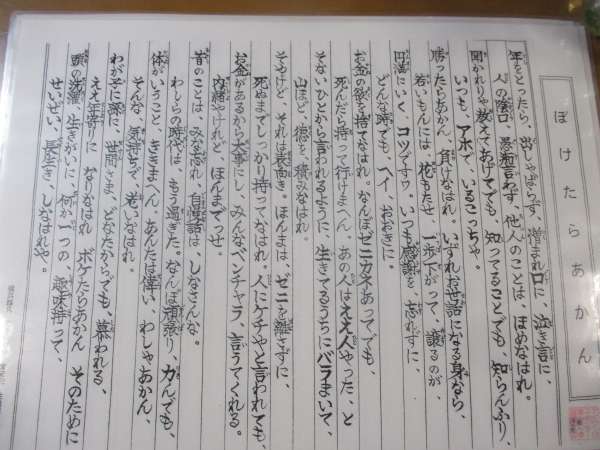 ぼけたらあかん
年をとったら、出しゃばらず、憎まれ口に、泣き言に、
人の陰口、愚痴言わず、他人のことは、ほめなはれ。
聞かれりゃ教えてあげてでも、知ってることでも、知らんふり、
いつも、アホで、いるこっちゃ。
勝ったらあかん、負けなはれ。いずれお世話になる身なら、
若いもんには、花もたせ、一歩下がって、譲るのが、
円満にいく、コツですワ。いつも感謝を、忘れずに、
どんな時でも、ヘイ、おおきに。
お金の欲を、捨てなはれ。なんぼゼニカネあってでも、
死んだら持って行けまへん。あの人はええ人やった、と
そないひとから言われるように、生きてるうちにバラまいて、
山ほど、徳を、積みなはれ。
そやけど、それは表向き。ほんまは、ゼニを離さずに、
死ぬまでしっかり持ってなはれ。人にケチやと言われても、
お金があるから大事にし、みんなベンチャラ、言うてくれる。
内緒やけれど、ほんまでっせ。
昔のことは、みな忘れ、自慢話は、しなさんな。
わしらの時代は、もう過ぎた。なんぼ頑張り、力んでも、
体がいうこと、ききまへん。あんたは偉い、わしゃあかん、
そんな、気持ちで、老いなはれ。
わが子に孫に、世間さま、どなたからでも、慕われる、
ええ年寄りに、なりなはれ。ボケたらあかん そのために
頭の洗濯、生きがいに、何か一つの、趣味持って、
せいぜい、長生き、しなはれや。